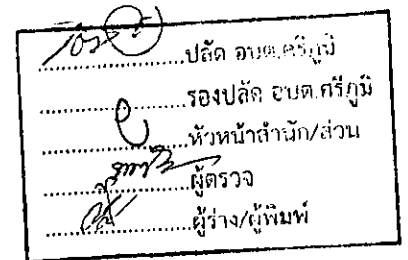 ปลัด อบต.ศรีภูมิ
รองปลัด อบต.ศรีภูมิ
หัวหน้าสำนัก/ส่วน
ผู้ตรวจ
ผู้ร่าง/ผู้พิมพ์